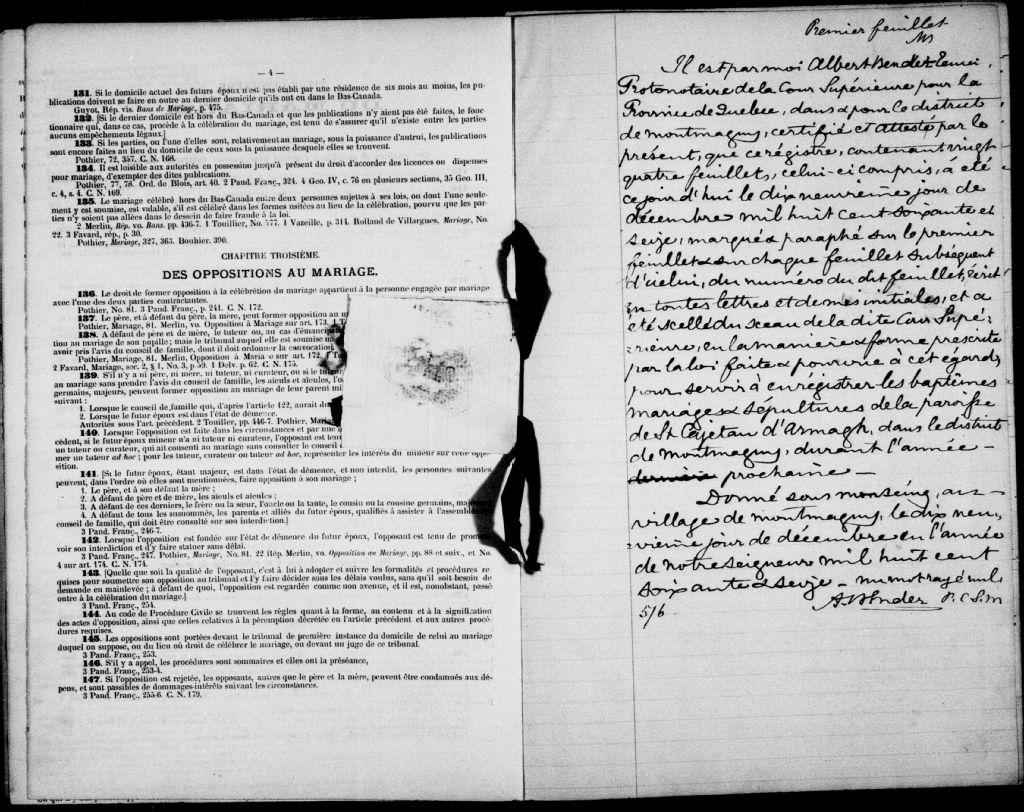 — 4 —
131. Si le domicile actuel des futurs époux n'est pas établi par une résidence de six mois au moins, les pu-
blications doivent se faire en outre au dernier domicile qu'ils ont eu dans le Bas-Canada.
Guyot, Rép. vis. Bans de Mariage, p. 475.
132. [Si le dernier domicile est hors du Bas-Canada et que les publications n'y aient pas été faites, le fonc-
tionnaire qui, dans ce cas, procède à la célébration du mariage, est tenu de s'assurer qu'il n'existe entre les parties
aucuns empêchements légaux.]
133. Si les parties, ou l'une d'elles, sont, relativement au mariage, sous la puissance d'autrui, les publications
sont encore faites au lieu du domicile de ceux sous la puissance desquels elles se trouvent.
Pothier, 72, 357. C. N. 168.
134. Il est loisible aux autorités en possession jusqu'à présent du droit d'accorder des licences ou dispenses
pour mariage, d'exempter des dites publications.
Pothier, 77, 78. Ord. de Blois, art. 40. 2 Pand. Franç., 324. 4 Geo. IV, c. 76 en plusieurs sections, 35 Geo. III,
c. 4, s. 4. C. N. 169.
135. Le mariage célébré hors du Bas-Canada entre deux personnes sujettes à ses lois, ou dont l'une seule-
ment y est soumise, est valable, s'il est célébré dans les formes usitées au lieu de la célébration, pourvu que les par-
ties n'y soient pas allées dans le dessein de faire fraude à la loi.
2 Merlin, Rép. vo. Bans. pp. 436-7. 1 Touillier, No. 577. 1 Vazeille, p. 314. Rolland de Villargues, Mariage, No.
22. 3 Favard, rép., p. 30.
Pothier, Mariage, 327, 363. Bouhier. 390.
CHAPITRE TROISIÈME.
DES OPPOSITIONS AU MARIAGE.
136. Le droit de former opposition à la célébrétion du mariage appartient à la personne engagée par mariage
avec l'une des deux parties contractantes.
Pothier, No. 81. 3 Pand. Franç., p. 241. C. N. 172.
137. Le père, et à défaut du père, la mère, peut former opposition au
Pothier, Mariage, 81. Merlin, vo. Opposition à Mariage sur art. 173.
138. A défaut de père et de mère, le tuteur ou, au cas d'émancip
tion au mariage de son pupille; mais le tribunal auquel elle est soumise
avoir pris l'avis du conseil de famille, dont il doit ordonner la convocation
Pothier, Mariage, 81. Merlin, Opposition à Maria e sur art. 172.
2 Favard, Mariage, sec. 2, § 1, No. 3, p 59. 1 Delv. p. 62. C. N. 175.
139. S'il n'y a ni père, ni mère, ni tuteur, ni curateur, ou si le
au mariage sans prendre l'avis du conseil de famille, les aïeuls et aïeules,
germains, majeurs, peuvent former opposition au mariage de leur parent
suivant :
1. Lorsque le conseil de famille qui, d'après l'article 122, aurait
2. Lorsque le futur époux est dans l'état de démence.
Autorités sous l'art. précédent. 2 Touiller, pp. 446-7. Pothier,
140. Lorsque l'opposition est faite dans les circonstances et par une
cédent, si le futur époux mineur n'a ni tuteur ni curateur, l'opposant est
un tuteur ou curateur, qui ait consenti au mariage sans consulter le conseil
mer un tuteur ad hoc; pour les tuteur, curateur ou tuteur ad hoc, représenter les intérêts du mineur sur cette oppo-
sition.
141. [Si le futur époux, étant majeur, est dans l'état de démence, et non interdit, les personnes suivantes
peuvent, dans l'ordre où elles sont mentionnées, faire opposition à son mariage ;
1. Le père, et à son défaut la mère ;
2. A défaut de père et de mère, les aïeuls et aïeules ;
3. A défaut de ces derniers, le frère ou la sœur, l'oncle ou la tante, le cousin ou la cousine germains,
4. A défaut de tous les susnommés, les parents et alliés du futur époux, qualifiés à assister à
conseil de famille, qui doit être consulté sur son interdiction.]
3 Pand. Franç., 246-7.
142. Lorsque l'opposition est fondée sur l'état de démence du futur époux, l'opposant est tenu de
voir son interdiction et d'y faire statuer sans délai.
3 Pand. Franç., 247. Pothier, Mariage, No. 81. 22 Rép. Merlin, vo. Opposition au Mariage, pp. 88 et suiv., et No.
4 sur art. 174. C. N. 174.
143. [Quelle que soit la qualité de l'opposant, c'est à lui à adopter et suivre les formalités et procédures re-
quises pour soumettre son opposition au tribunal et l'y faire décider sous les délais voulus, sans qu'il soit besoin de
demande en mainlevée ; à défaut de quoi, l'opposition est regardée comme non avenue, et il est, nonobstant, passé
outre à la célébration du mariage.]
3 Pand. Franç., 254.
144. Au code de Procédure Civile se trouvent les règles quant à la forme, au contenu et à la signification
des actes d'opposition, ainsi que celles relatives à la péremption décrétée en l'article précédent et aux autres procé-
dures requises.
145. Les oppositions sont portées devant le tribunal de première instance du domicile de celui au mariage
duquel on suppose, ou du lieu où droit de célébrer le mariage, ou devant un juge de ce tribunal.
3 Pand. Franç., 253.
146. S'il y a appel, les procédures sont sommaires et elles ont la préséance,
3 Pand. Franç., 253-4.
147. Si l'opposition est rejetée, les opposants, autres que le père et la mère, peuvent être condamnés aux dé-
pens, et sont passibles de dommages-intérêts suivant les circonstances.
3 Pand. Franç., 255-6. C. N. 179.
Premier feuillet
Il est par moi Albert Bender Ecuier,
Protonotaire de la Cour Supérieure pour la
Province de Quebec, dans & pour le district
de montmagny, certifié et attesté par le
présent, que ce régistre, contenant vingt
quatre feuillets, celui-ci compris, à été
ce jour d'hui le dix neuvième jour de
décembre mil huit cent soixante et
seize, marqué & paraphé sur le premier
feuillet & sur chaque feuillet subséquent
d'icelui, du numéro du dit feuillet, écrit
en toutes lettres et de mes initiales, et a
été scellé du sceau de la dite Cour Supé-
rieure, en la manière & forme prescrite
par la loi faite & pourvue à cet égard,
pour servir à enrégistrer les baptêmes
mariages & sépultures de la paroisse
de St Cajetan d'Armagh, dans le district
de montmagny, durant l'année —
dernière prochaine —
Donné sous mon seing, au —
village de montmagny, le dix neu-
vième jour de décembre en l'année
de notre seigneur mil huit cent
soixante & seize — un mot rayé nul
A Bender P. C. S. M